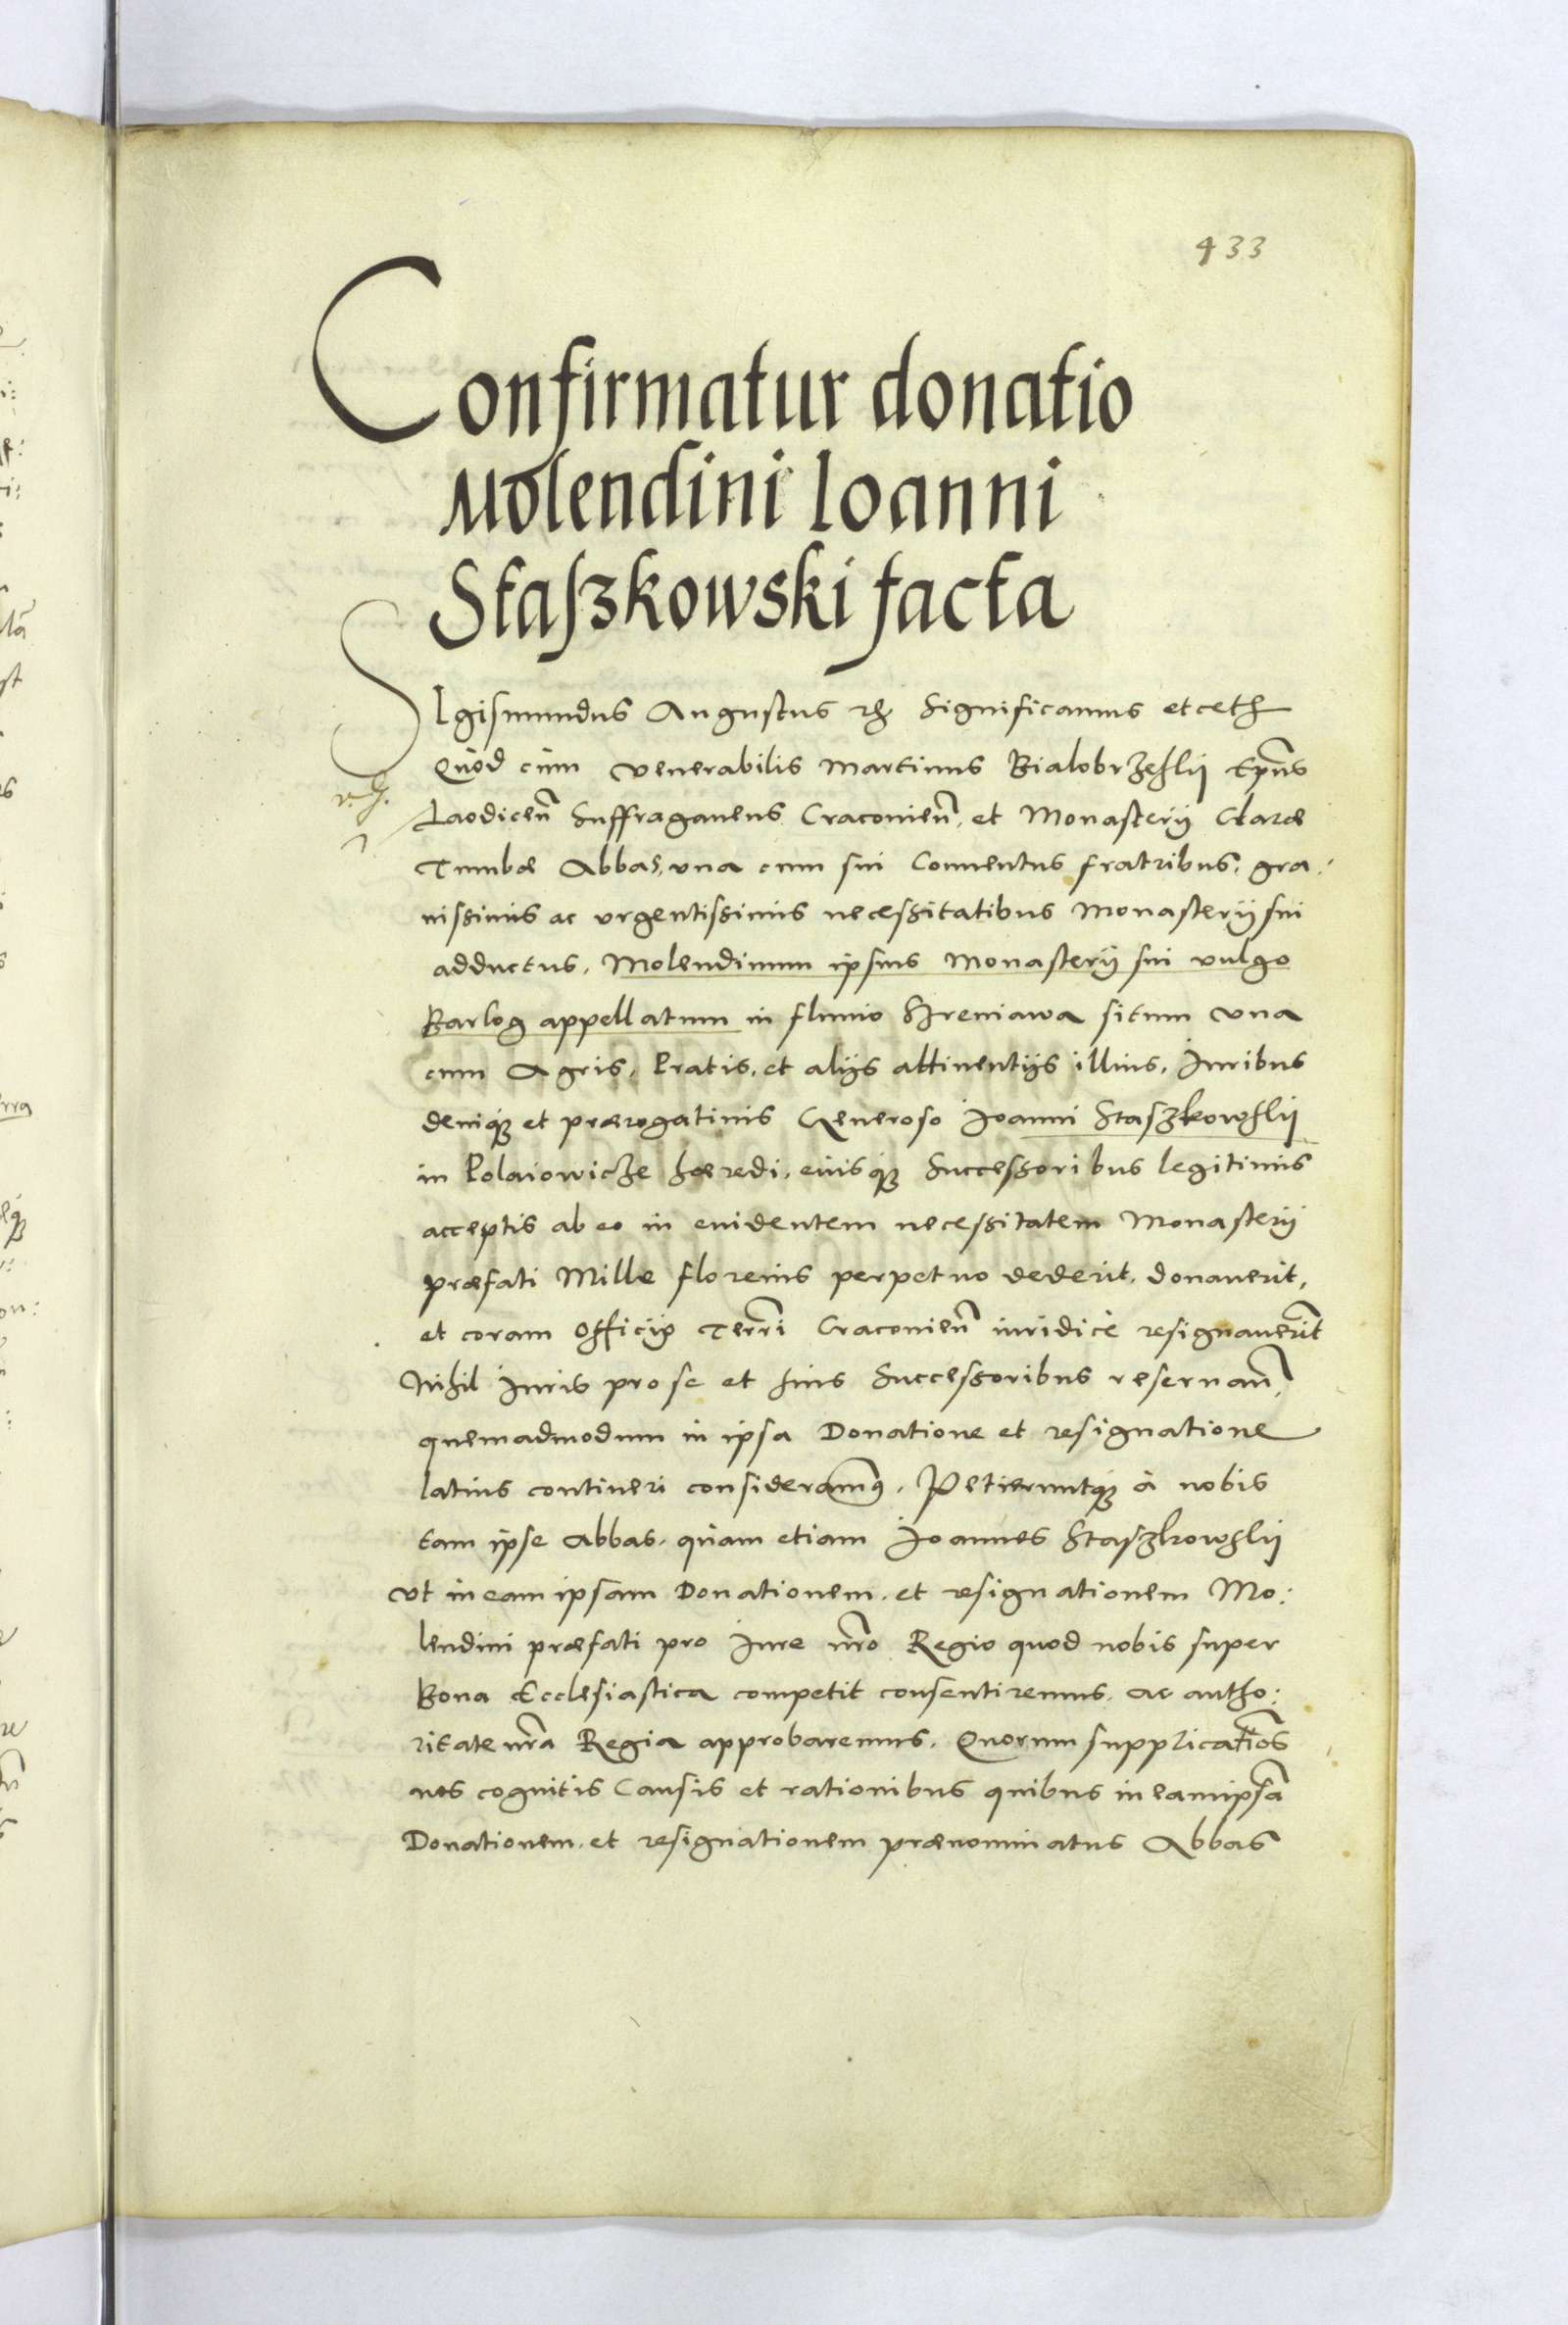 433
Confirmatur donatio
Molendini Ioanni
Staszkowski facta
SIgismundus Augustus rex Significamus etceth
Quod cùm venerabilis Martinus Bialobrzeskÿ Epũs
Laodiceñ Suffraganeus Cracovieñ, et Monasterij Claræ
Tumbæ Abbas, una cum sui Conventus fratribus, gra:
uissimis ac urgentissimis necessitatibus Monasterij sui
adductus, Molendinum ipsius Monasterij sui vulgo
Barlog appellatum in fluvio Sreniawa situm una
cum Agris, Pratis, et alijs attinentijs illius, Iuribus
deniq̃ et prærogatiuis Generoso Ioanni Staszkowskÿ
in Polaiowicze hæredi, eiusq̃ Successoribus legitimis
acceptis ab eo in euidentem necessitatem Monasterij
præfati Mille florenis perpetuo dederit, donauerit,
et coram Officijs Terrĩ Cracovieñ iuridicè resignauerĩt
Nihil Iuris pro se et suis Successoribus reseruañ,
quemadmodum in ipsa Donatione et resignatione
latius contineri consideramꝰ. Petieruntq̃ à nobis
tam ipse Abbas, quàm etiam Ioannes Staszkowskÿ
ut in eam ipsam Donationem, et resignationem Mo:
lendini præfati pro Iure nr̃o Regio quod nobis super
Bona Ecclesiastica competit consentiremus, ac autho:
ritate nr̃a Regia approbaremus. Quorum supplicatiõs
nos cognitis Causis et rationibus quibus in eamipsã
Donationem, et resignationem prænominatus Abbas